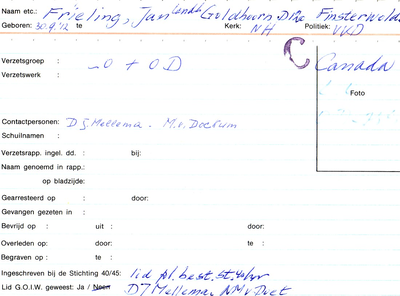 Naam etc.: Frieling, Jan Landb Guldhoorn D176 Finsterwolde
Geboren: 30.9.'12 te Kerk: NH Politiek: VVD
C Canada
Verzetsgroep : LO + OD
Verzetswerk :
Foto
Contactpersonen: D J. Mellema. M.v. Dockum
Schuilnamen :
Verzetsrapp. ingel. dd. : bij:
Naam genoemd in rapp.:
op bladzijde:
Gearresteerd op : door:
Gevangen gezeten in :
Bevrijd op : uit : door:
Overleden op: door: te :
Begraven op : te :
Ingeschreven bij de Stichting 40/45: lid pl. best. St. 40/45
Lid G.O.I.W. geweest: Ja / Neen DJ Mellema,